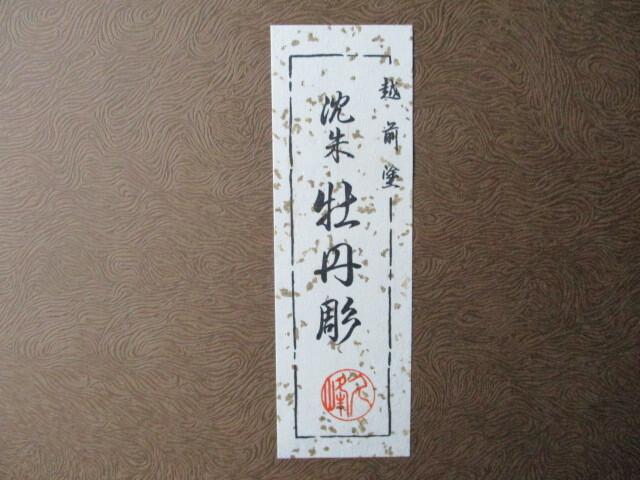 越前塗
沈朱
牡丹彫